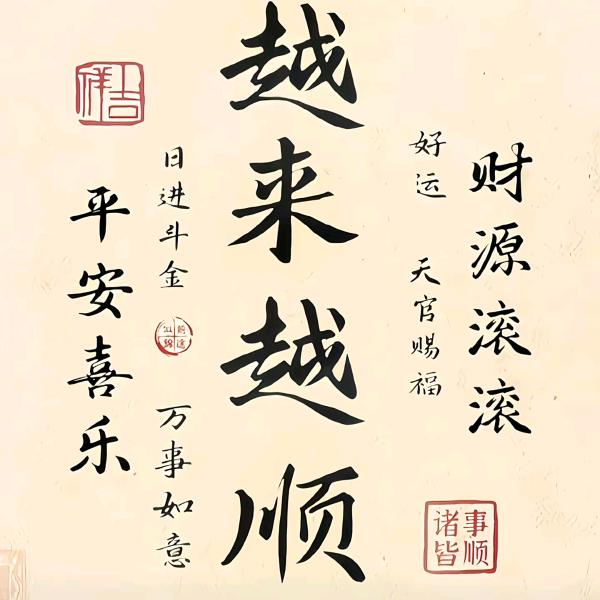 财源滚滚
好运 天官赐福
诸事皆顺
越来越顺
日进斗金
前途似锦
万事如意
平安喜乐
吉祥